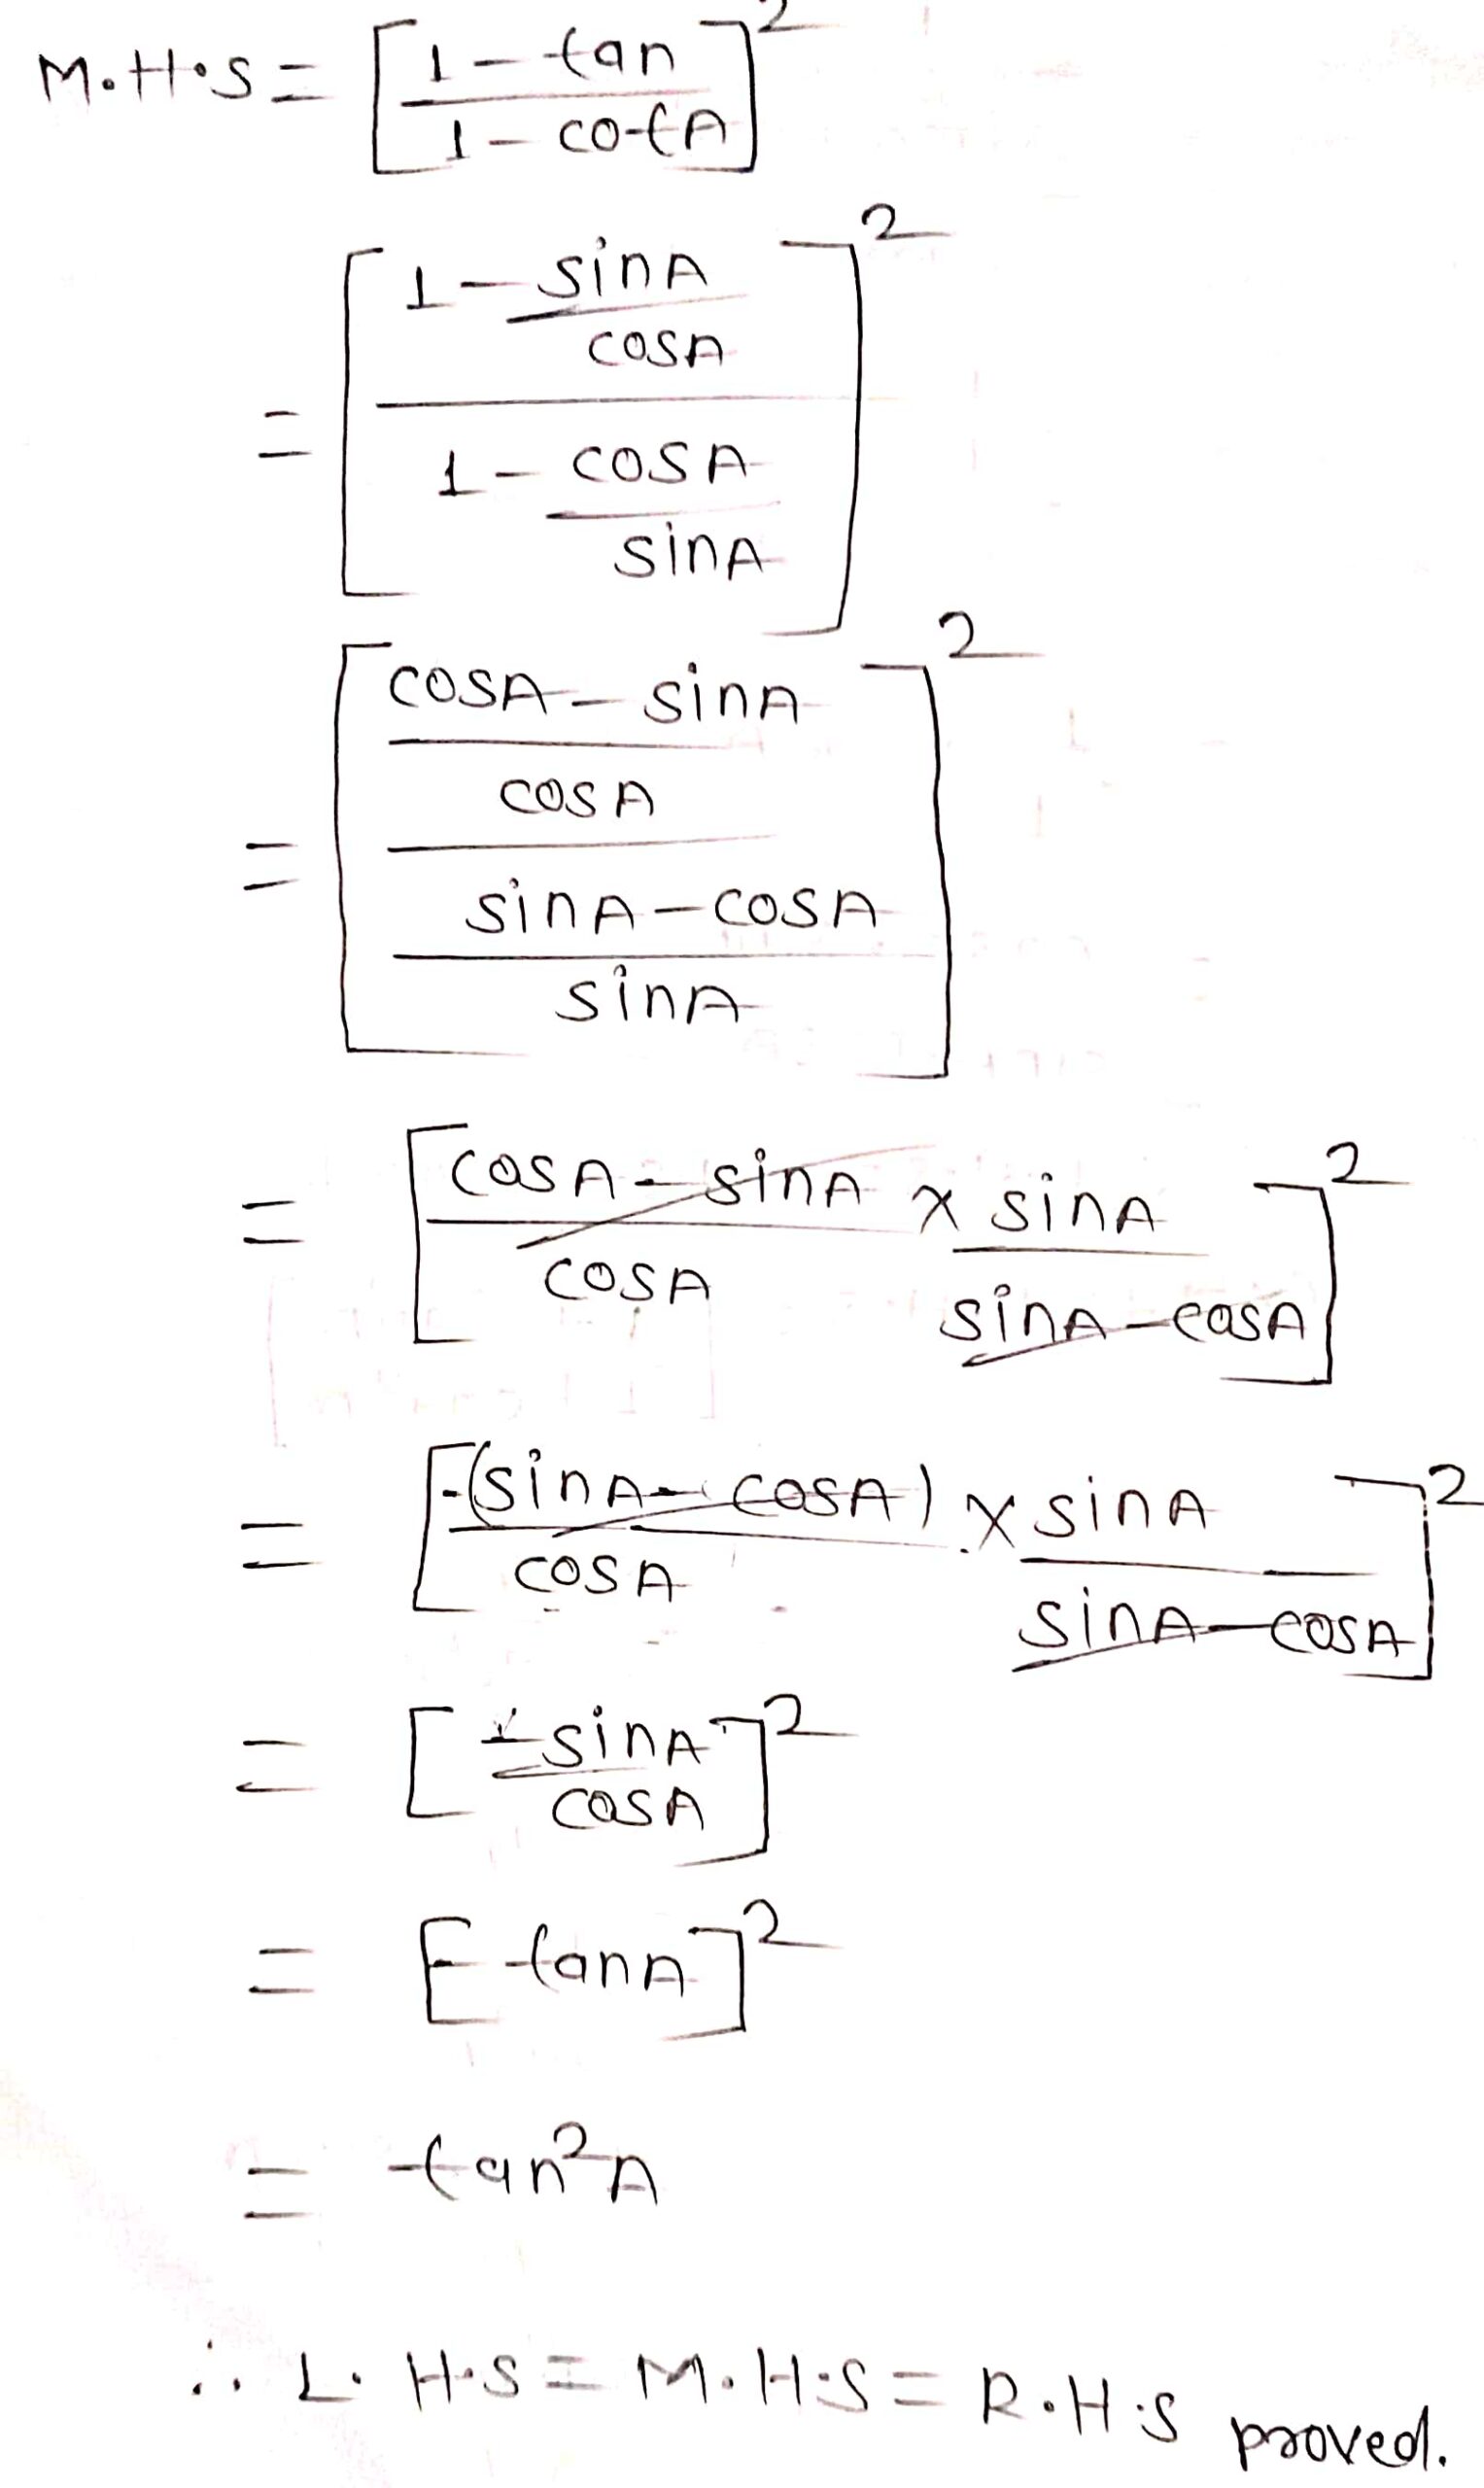 M.H.S = [1 - tan / 1 - cotA]²
= [1 - sinA/cosA / 1 - cosA/sinA]²
= [cosA - sinA / cosA / sinA - cosA / sinA]²
= [cosA - sinA / cosA × sinA / sinA - cosA]²
= [-(sinA - cosA) / cosA × sinA / sinA - cosA]²
= [- sinA / cosA]²
= [- tanA]²
= tan²A
∴ L.H.S = M.H.S = R.H.S proved.